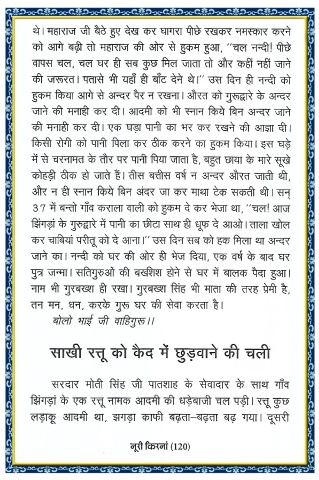 थे। महाराज जी बैठे हुए देख कर घागरा पीछे रखकर नमस्कार करने
को आगे बढ़ी तो महाराज की ओर से हुकम हुआ, “चल नन्दी! पीछे
वापस चल, चल घर ही सब कुछ मिल जाता तो और कहीं नहीं जाने
की जरूरत। पतासे भी यहाँ ही बाँट देने थे।” उस दिन ही नन्दी को
हुकम किया आगे से अन्दर पैर न रखना। औरत को गुरूद्वारे के अन्दर
जाने की मनाही कर दी। आदमी को भी स्नान किये बिन अन्दर जाने
की मनाही कर दी। एक घड़ा पानी का भर कर रखने की आज्ञा दी।
किसी रोगी को पानी पिला कर ठीक करने का हुकम किया। इस घड़े
में से चरनामत के तौर पर पानी पिया जाता है, बहुत छाया के मारे सूखे
कोहड़ी ठीक हो जाते हैं। तीस बत्तीस वर्ष न अन्दर औरत जाती थी,
और न ही स्नान किये बिन अंदर जा कर माथा टेक सकती थी। सन्
37 में बन्तो गाँव कराला वाली को हुकम दे कर भेजा था, “चल! आज
झिंगड़ां के गुरुद्वारे में पानी का छीटा साथ ही धूफ दे आओ। ताला खोल
कर चाबियां परीतू को दे आना।” उस दिन सब को हक मिला था अन्दर
जाने का। नन्दी को घर की ओर ही भेज दिया, एक वर्ष के बाद घर
पुत्र जन्मा। सतिगुरुओं की बख्शिश होने से घर में बालक पैदा हुआ।
नाम भी गुरबख्श ही रखा। गुरबख्श सिंह भी माता की तरह प्रेमी है,
तन मन, धन, करके गुरू घर की सेवा करता है।
बोलो भाई जी वाहिगुरू।।
साखी रत्तू को कैद में छुड़वाने की चली
सरदार मोती सिंह जी पातशाह के सेवादार के साथ गाँव
झिंगड़ां के एक रत्तू नामक आदमी की धड़ेबाजी चल पड़ी। रत्तू कुछ
लड़ाकू आदमी था, झगड़ा काफी बढ़ता-बढ़ता बढ़ गया। दूसरी
नूरी किरनां (120)